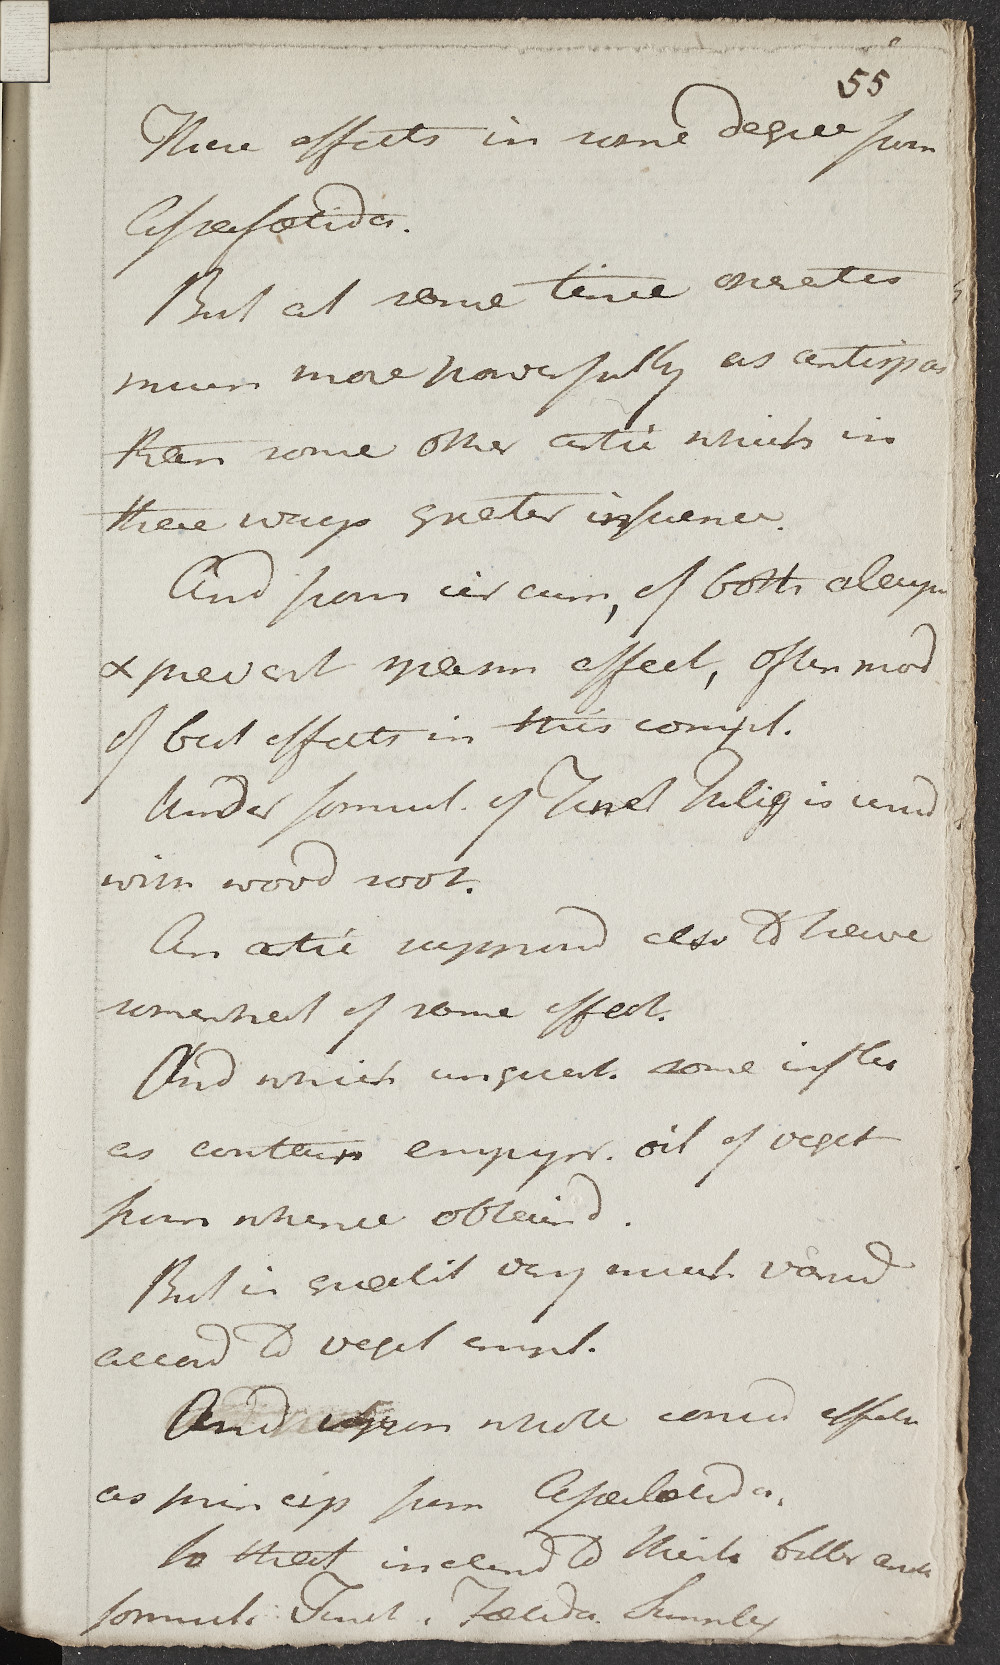 55
These effects in some degree from
Assafœtida.
But at same time operates
much more powerfully as antispas
than some other artic which in
these ways greater influence.
And from circum, of both alleyn
& prevent spasm effect, often mod
of best effects in this compl.
Under formul. of Tinct Fulig is und
with wood soot.
An artic suppos'd also to have
somewhat of same effect.
And which unquest. some infl
as contain empyr. oil of veget
from whence obtain'd.
But in qualit very much vari'd
accord to veget empl.
And upon whole consid effects
as princip from Assafœtida.
So that inclin'd to think better
formul: Tinct. Fœtida. Simply